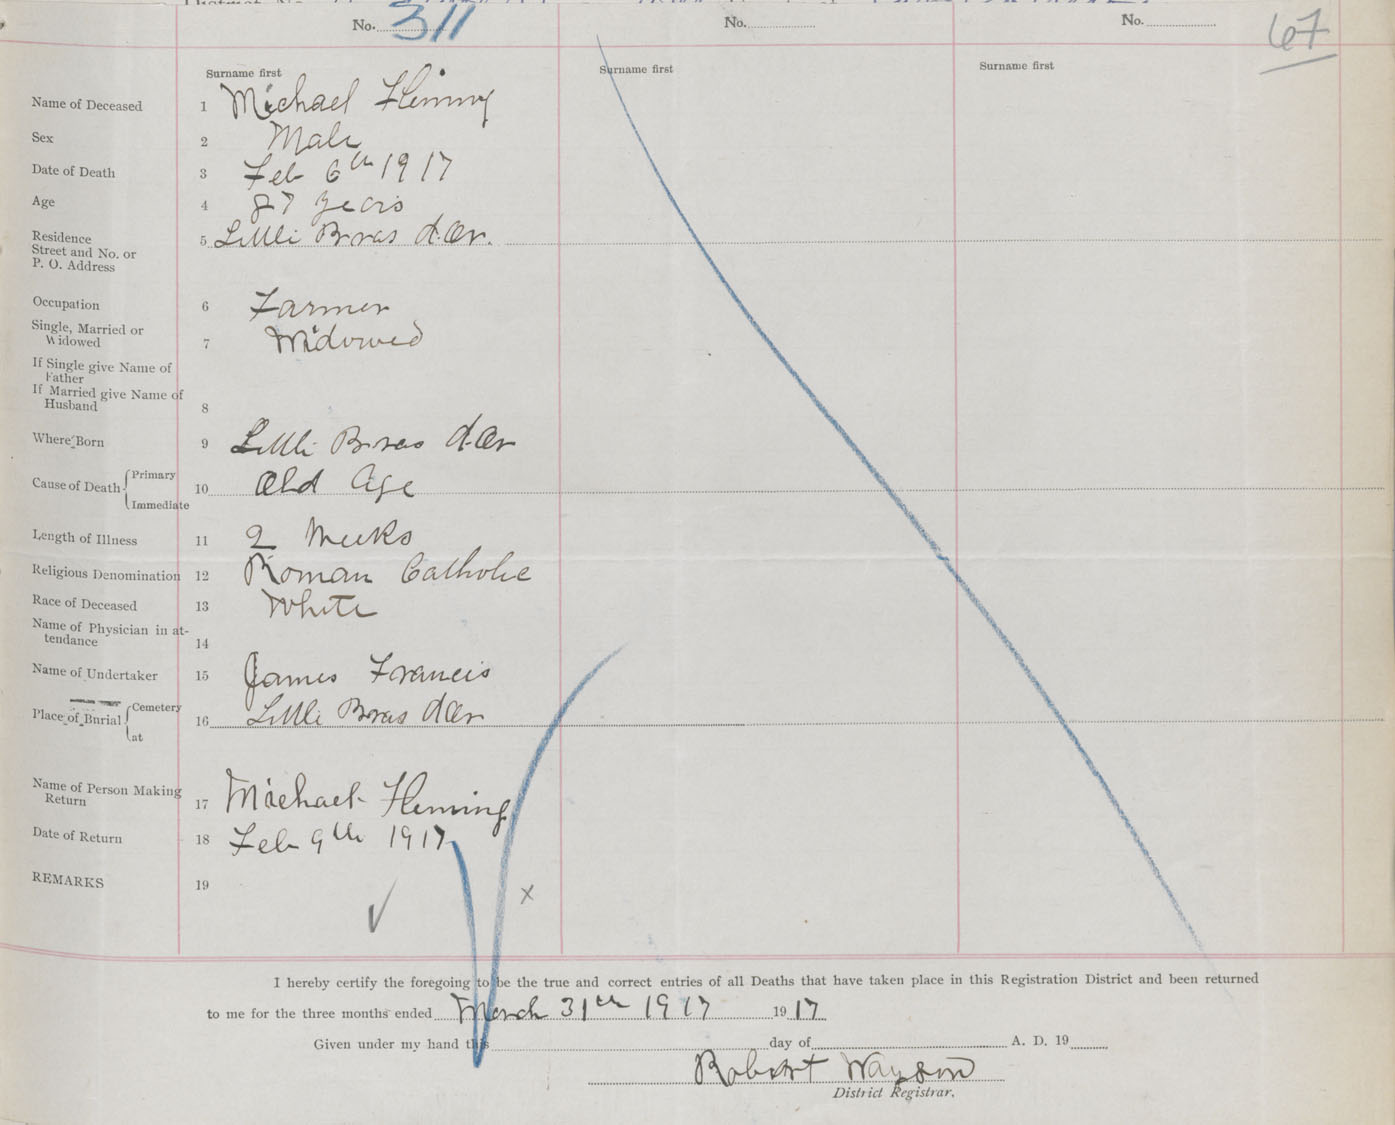 No. 311
No.
No.
67
Surname first
Surname first
Surname first
Name of Deceased 1 Michael Fleming
Sex 2 Male
Date of Death 3 Feb 6th 1917
Age 4 87 years
Residence
Street and No. or
P. O. Address
5 Little Bras d.Or.
Occupation 6 Farmer
Single, Married or
Widowed
7 Widowed
If Single give Name of
Father
If Married give Name of
Husband
8
Where Born 9 Little Bras d.Or
Cause of Death { Primary
Immediate
10 Old Age
Length of Illness 11 2 Weeks
Religious Denomination 12 Roman Catholic
Race of Deceased 13 White
Name of Physician in at-
tendance
14
Name of Undertaker 15 James Francis
Place of Burial { Cemetery
at
16 Little Bras dOr
Name of Person Making
Return
17 Michael Fleming
Date of Return 18 Feb 9th 1917
REMARKS 19
x
I hereby certify the foregoing to be the true and correct entries of all Deaths that have taken place in this Registration District and been returned
to me for the three months ended March 31th 1917 1917
Given under my hand this day of A. D. 19
Robert
District Registrar.